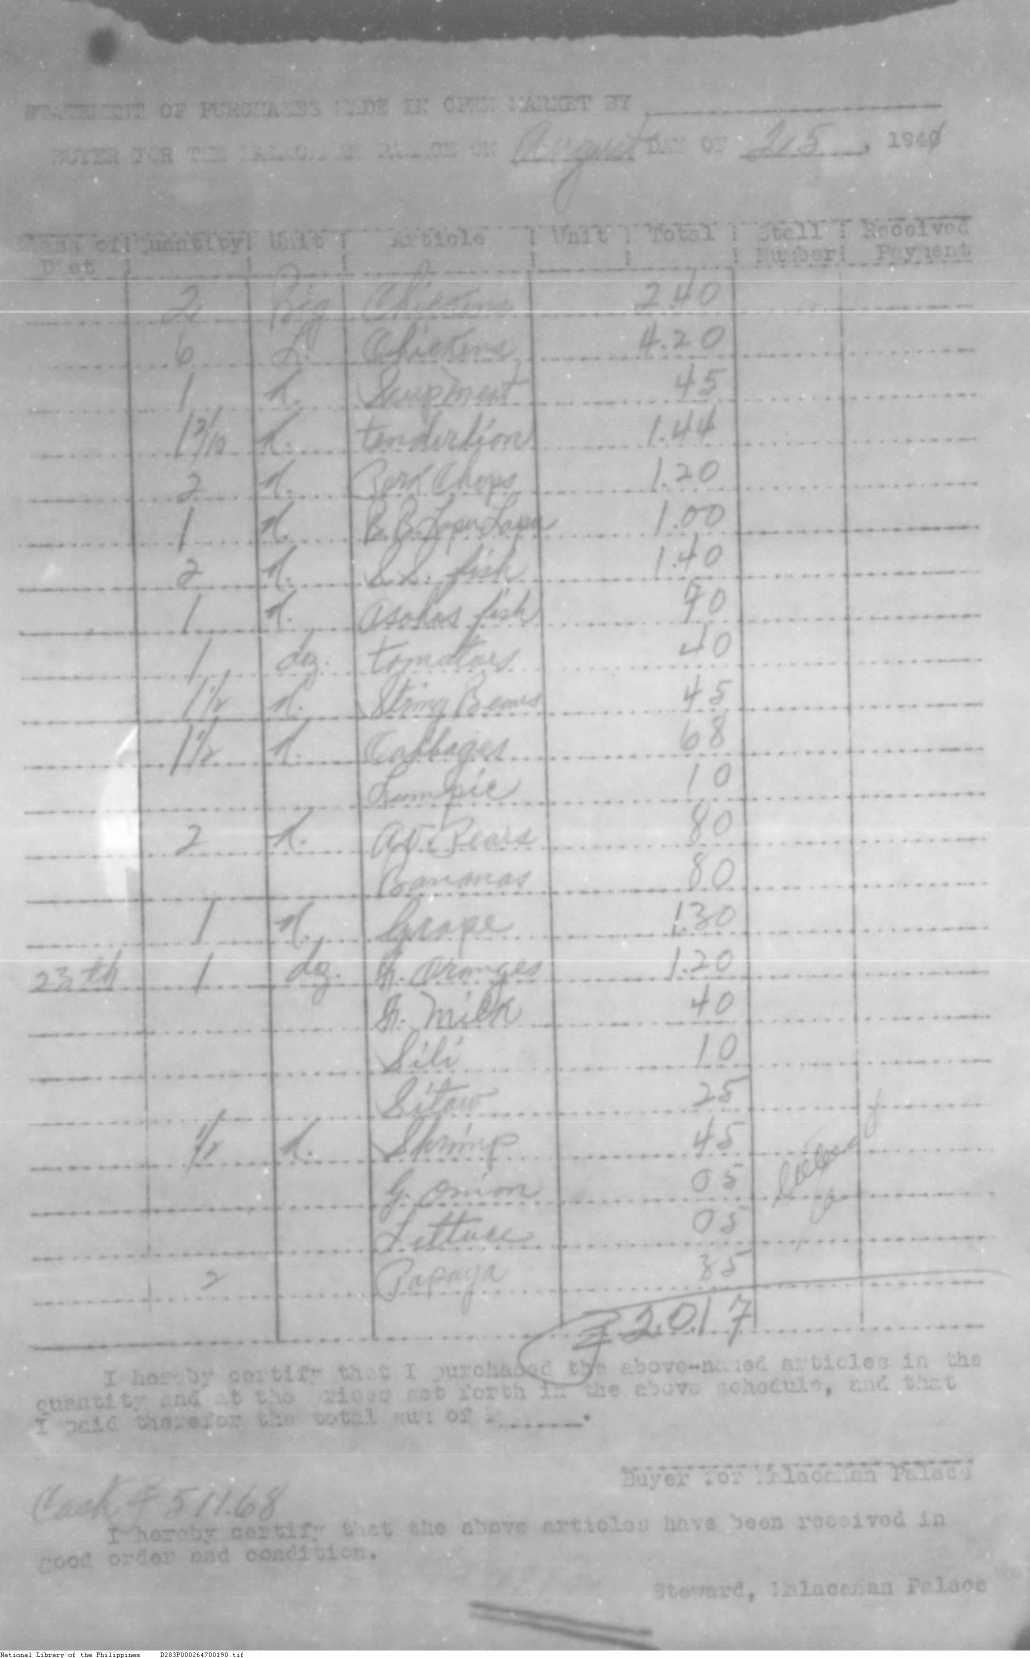 STATEMENT OF PURCHASES MADE IN OPEN MARKET BY
BUYER FOR THE MALACAÑAN PALACE ON August DAY OF 25, 194
Class of Quantity Unit Article Unit Total Stall Received
Diet Number Payment
2 Big Chickens 2.40
6 L. Chickens 4.20
1 k. Soup Meat 45
1 2/10 k. tenderlion 1.44
2 k. Pork Chops 1.20
1 k. B.B. Lapu Lapu 1.00
2 k. S.S. fish 1.40
1 k. Asohos fish 90
1 doz. tomatoes 40
1 1/2 k. String Beans 45
1 1/2 k. Cabbages 68
Lumpie 10
2 k. Av. Pears 80
Bananas 80
1 k. Grape 1.30
23th 1 doz. oranges 1.20
Milk 40
Sili 10
Sitaw 25
1/2 k. Shrimp 45
G. onion 05
Lettuce 05
2 Papaya 35
₱ 20.17
I hereby certify that I purchased the above-named articles in the
quantity and at the prices set forth in the above schedule, and that
I paid therefor the total sum of
Buyer for Malacañan Palace
Cash ₱ 511.68
I hereby certify that the above articles have been received in
good order and condition.
Steward, Malacañan Palace
National Library of the Philippines D283P000264700190.tif